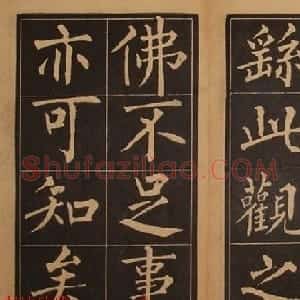 繇此觀之
佛不足事
亦可知矣
Shufaziliao.COM